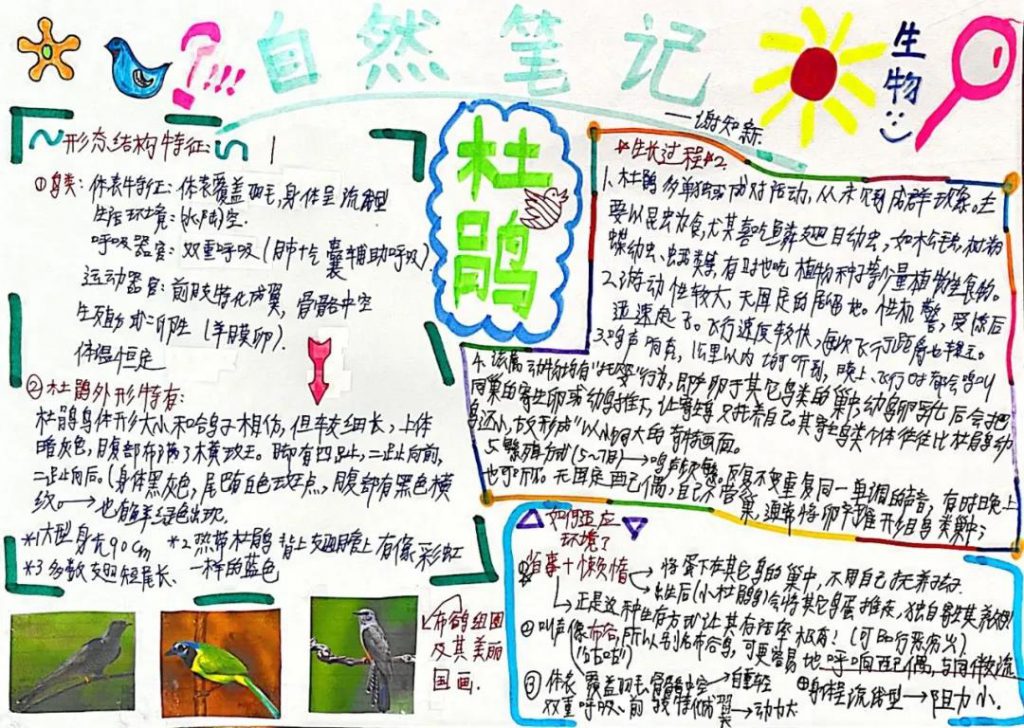 自然笔记
——谢知新
生物
杜鹃
形态结构特征:
①鸟类: 体表特征: 体表覆盖羽毛,身体呈流线型
生活环境: (水陆)空.
呼吸器官: 双重呼吸 (肺 气囊辅助呼吸)
运动器官: 前肢特化成翼, 骨骼中空
生殖方式: 卵生 (羊膜卵).
体温恒定
②杜鹃外形特有:
杜鹃鸟体形大小和鸽子相仿, 但较细长, 上体
暗灰色, 腹部布满了横斑. 脚有四趾, 二趾向前,
二趾向后. (身体黑灰色, 尾巴 白色斑点, 腹部有黑色横
纹.→也有鲜绿色出现.
*1大型身长90cm *2 热带杜鹃背上翅膀上有像彩虹
*3 多数翅短尾长、 一样的蓝色
布鸽组图
及其美丽
国画.
生长过程 2.
1. 杜鹃多单独或成对活动, 从未见成群 . 主
要以昆虫为食, 尤其喜吃鳞翅目幼虫, 如松毛虫,
蝶幼虫、 类, 有时也吃植物种子等少量植物性食物.
2. 活动性较大, 无固定的居留地. 性机警, 受惊后
迅速飞 . 飞行速度较快, 每次飞行距离也较远.
3. 鸣声响亮, 里以内均可听到, 晚上、飞行时都会鸣叫
4. 该属动物均有"托婴"行为, 即产卵于其它鸟类的巢中, 幼鸟孵出后会把
同巢的寄生卵或幼鸟推下, 让寄生 只托养自己. 其寄生鸟类个体往往比杜鹃幼
鸟还小, 故形成"以小 大的奇特画面.
5. 繁殖方式 (5~7月)→鸣声频繁. 反复不变重复同一单调的声音, 有时晚上
也可听到. 无固定配偶, 自己不营
巢, 通常将卵产在雀形目鸟类巢中;
如何适应
环境?
① +懒惰→将蛋下在其它鸟的巢中, 不用自己抚养孩子.
出生后(小杜鹃鸟)会将其它鸟蛋推夜, 独自寄生其养
↳正是这种生存方式让其存活率极高! (可 行恶劣 )
② 叫声像布谷, 所以别名布谷鸟, 可更容易地呼唤配偶, 与同伴交流
("咕咕")
③ 体表覆盖羽毛, 骨骼中空→自重轻 ④身体流线型→阻力小.
双重呼吸、前肢特化为翼→动力大